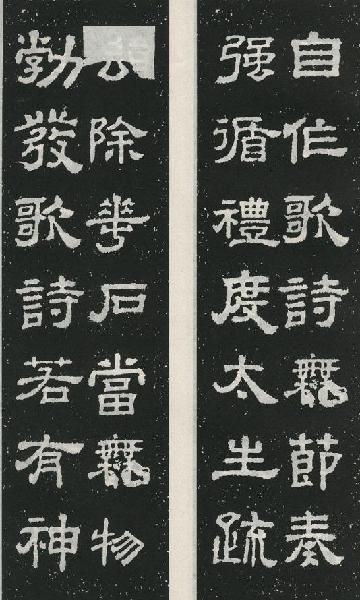 自作歌詩無節奏
强循禮度太生疏
除華石當無物
勃發歌詩若有神